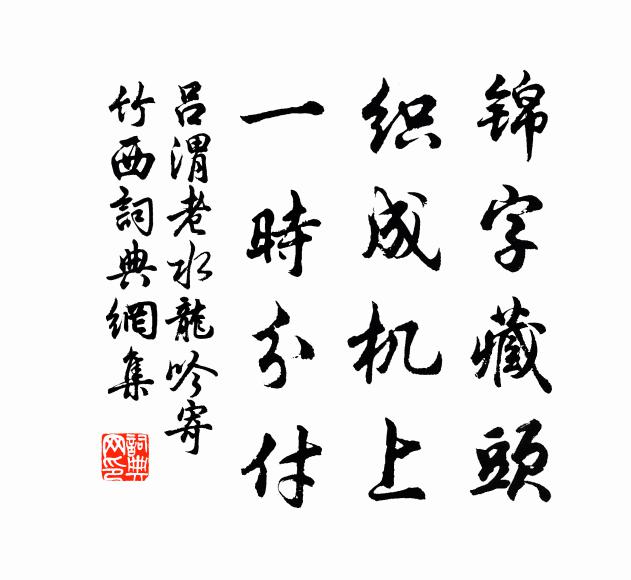 锦字藏頭
织成机上
一時分付
吕渭老水龍吟寄
竹西詞典網集
詞典网印